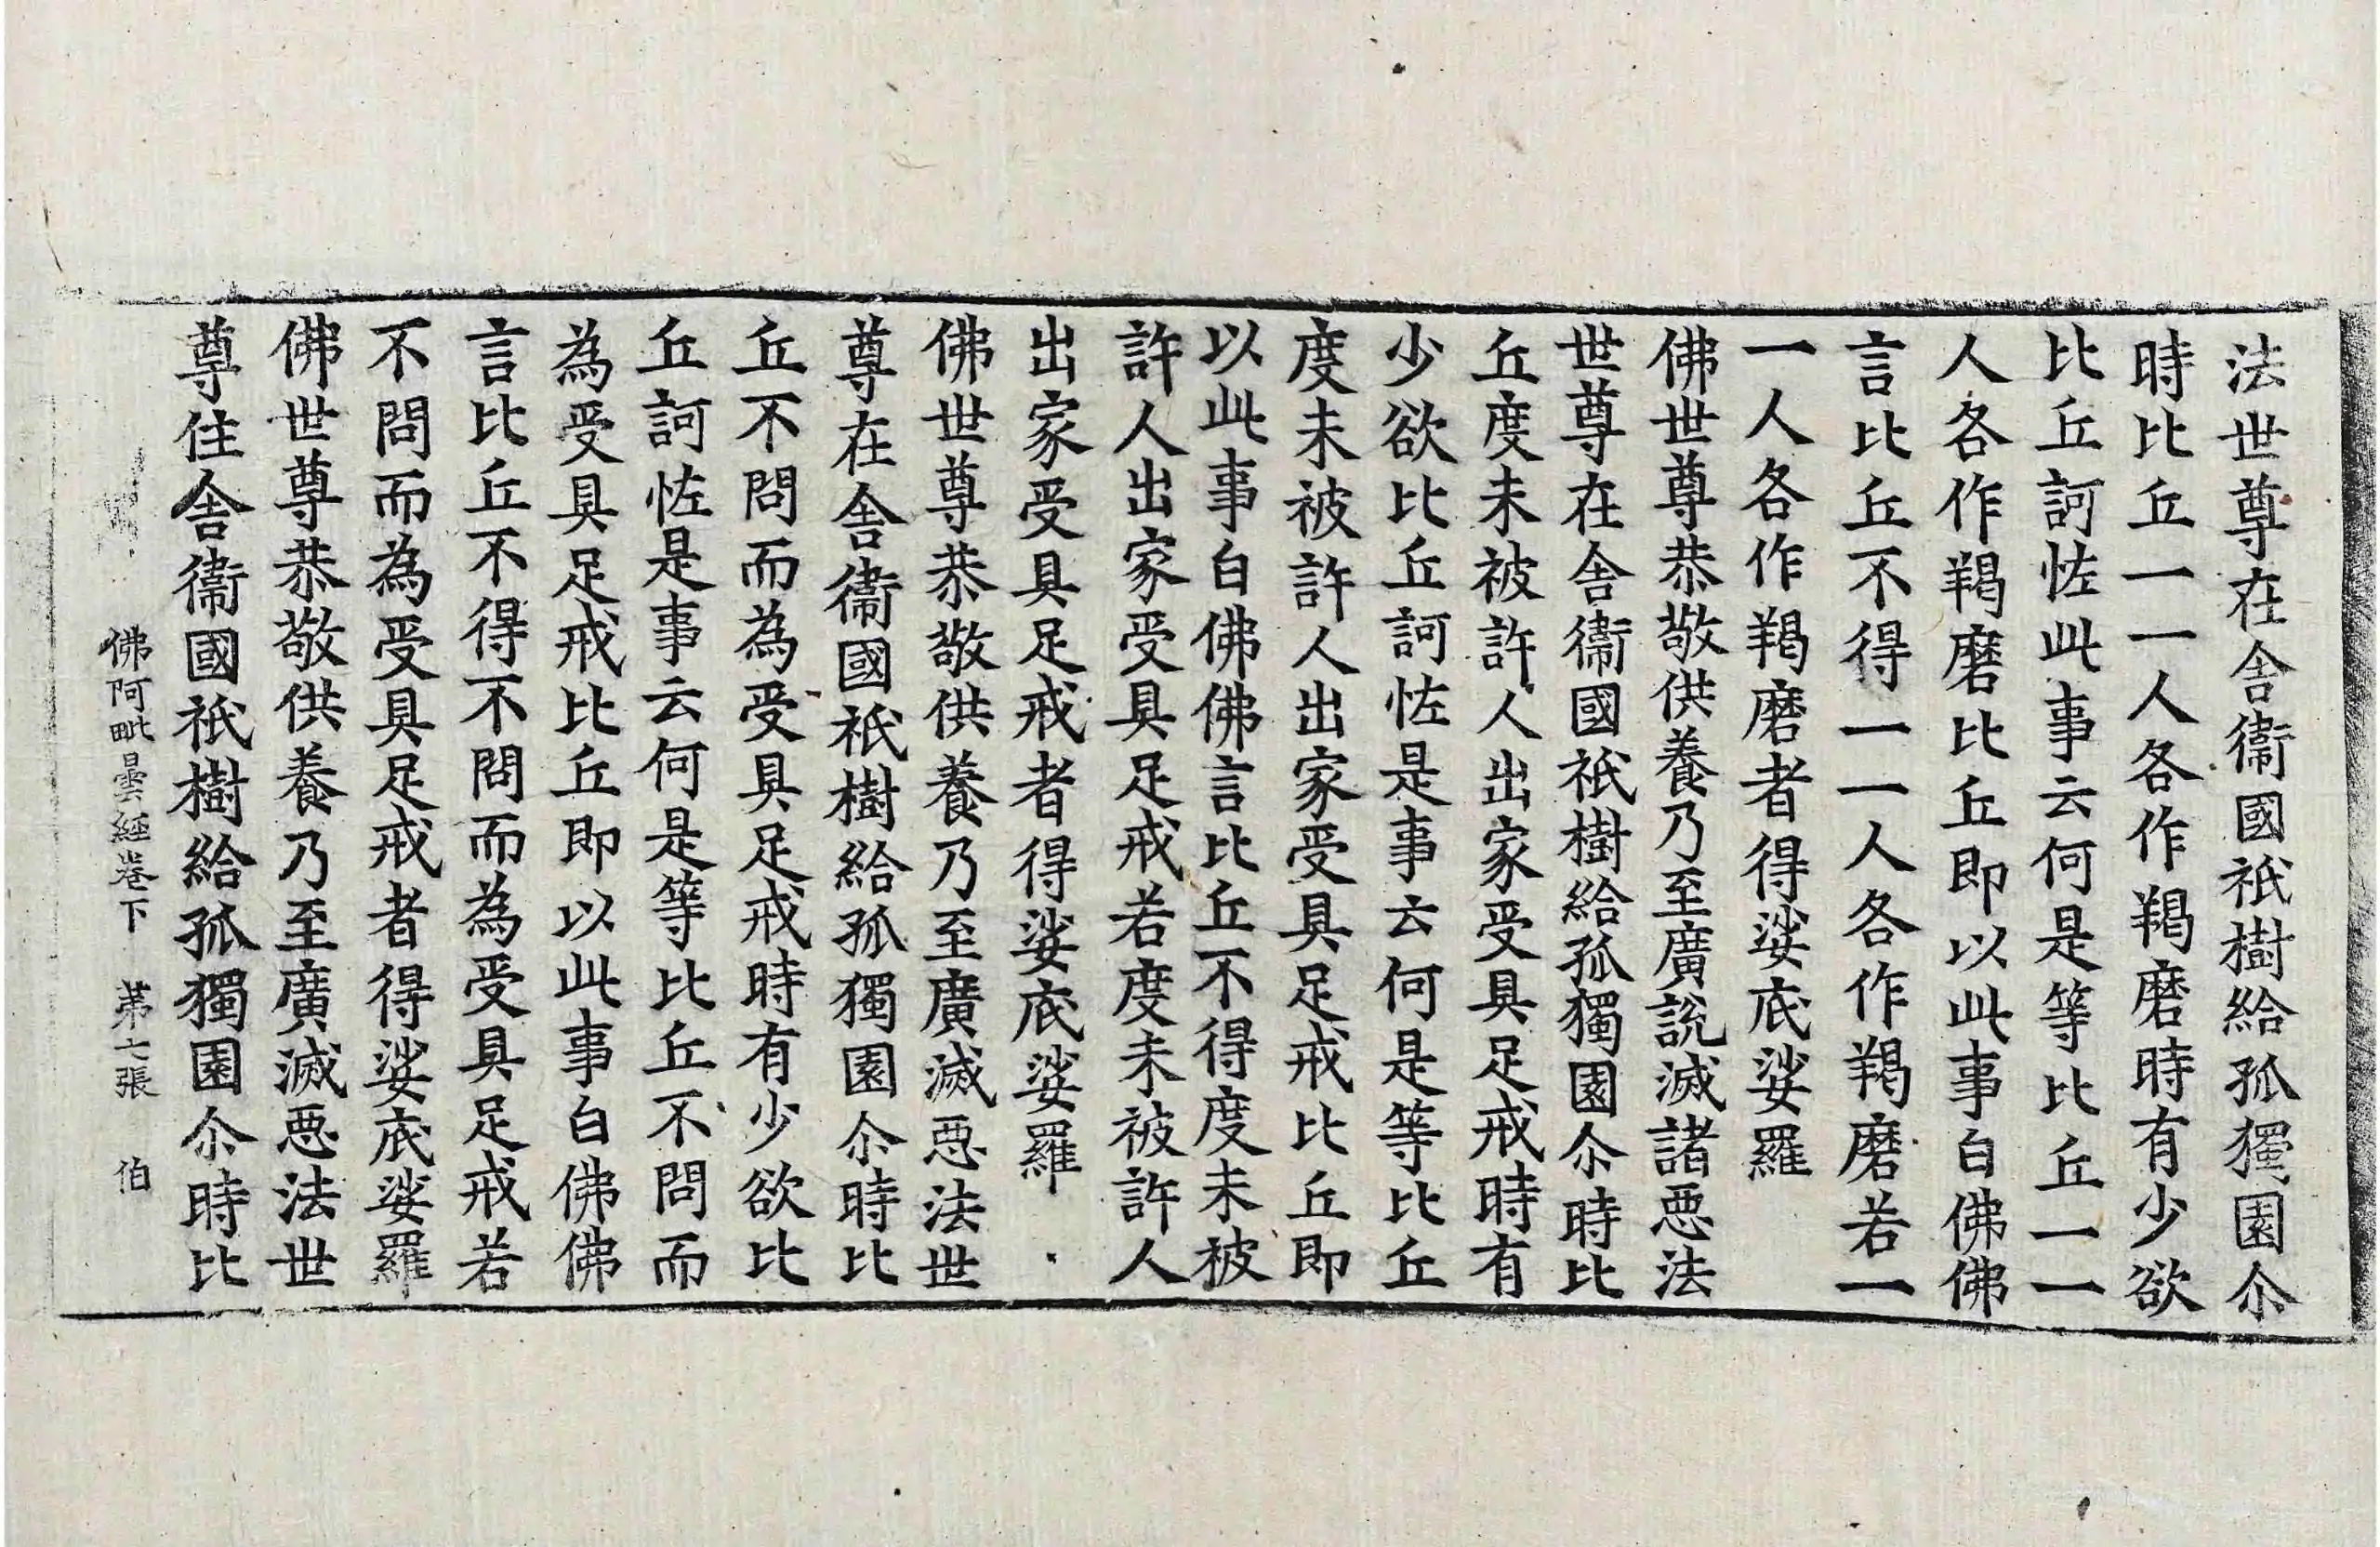 法世尊在舎衞國祇樹給孤獨園尒
時比丘一一人各作羯磨時有少欲
比丘訶恠此事云何是等比丘一一
人各作羯磨比丘即以此事白佛佛
言比丘不得一一人各作羯磨若一
一人各作羯磨者得娑底娑羅
佛世尊恭敬供養乃至廣說滅諸惡法
世尊在舎衞國祇樹給孤獨園尒時比
丘度未被許人出家受具足戒時有
少欲比丘訶恠是事云何是等比丘
度未被許人出家受具足戒比丘即
以此事白佛佛言比丘不得度未被
許人出家受具足戒若度未被許人
出家受具足戒者得娑底娑羅
佛世尊恭敬供養乃至廣滅惡法世
尊在舎衞國祇樹給孤獨園尒時比
丘不問而為受具足戒時有少欲比
丘訶恠是事云何是等比丘不問而
為受具足戒比丘即以此事白佛佛
言比丘不得不問而為受具足戒若
不問而為受具足戒者得娑底娑羅
佛世尊恭敬供養乃至廣滅惡法世
尊住舎衞國祇樹給孤獨園尒時比
佛阿毗曇經卷下 第七張 伯